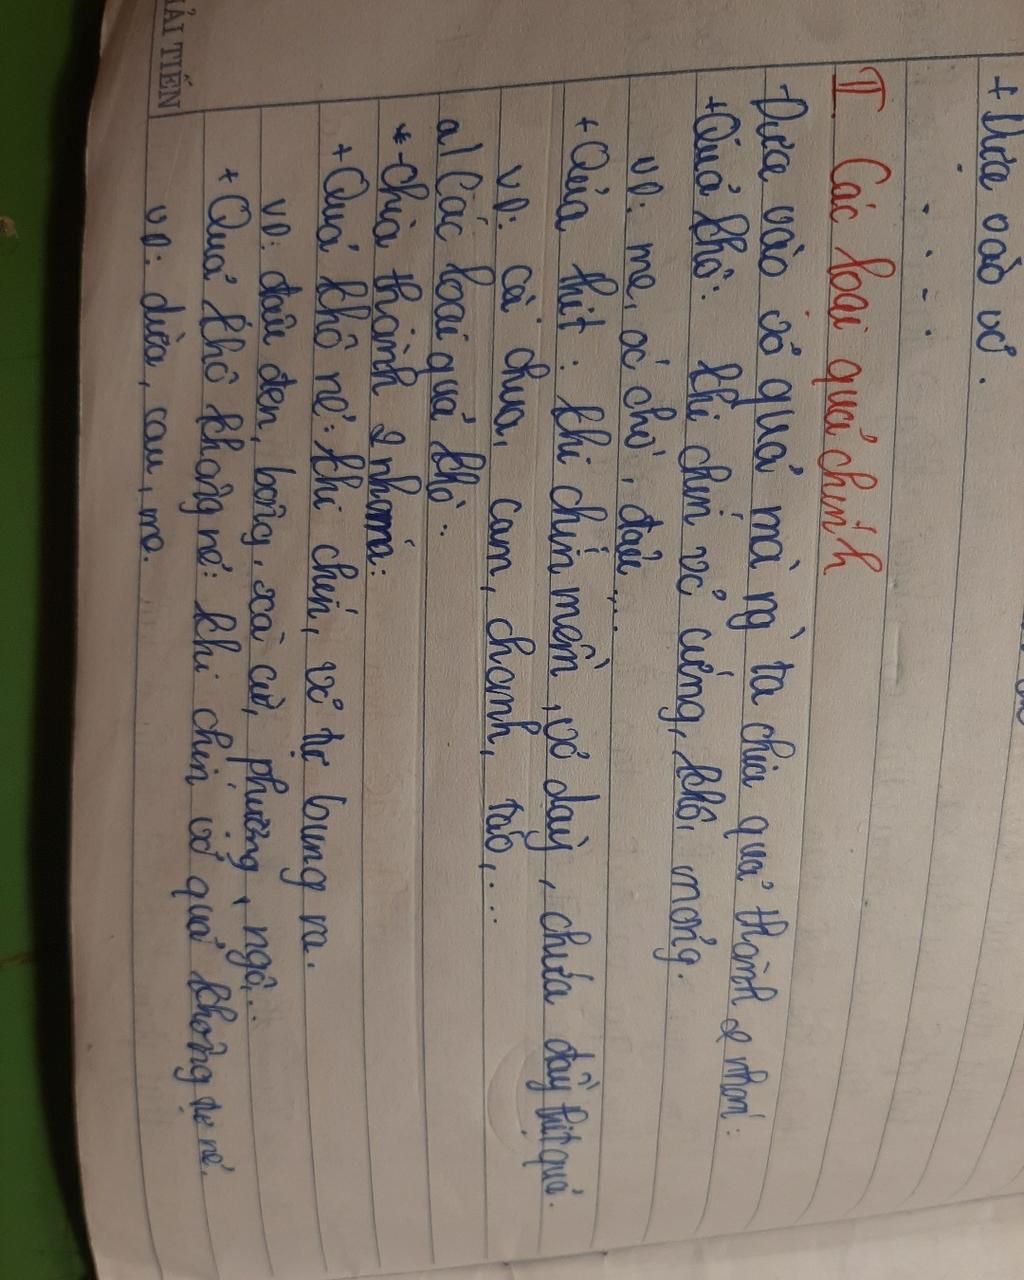 + Dựa vào vỏ.
. . - .
II. Các loại quả chính
- Dựa vào vỏ quả mà ng` ta chia quả thành 2 nhóm:
+ Quả khô: khi chín vỏ cứng, khô, mỏng.
VD: me, óc chó, đậu...
+ Qủa thịt: khi chín mềm, vỏ dày, chứa đầy thịt quả.
VD: cà chua, cam, chanh, táo,...
a) Các loại quả khô:
* - Chia thành 2 nhóm:
+ Quả khô nẻ: khi chín, vỏ tự bung ra.
VD: đậu đen, bông, xà cừ, phượng, ngô,..
+ Quả khô không nẻ: khi chín vỏ quả không tự nẻ.
VD: dừa, cau, me.
ẢI TIẾN